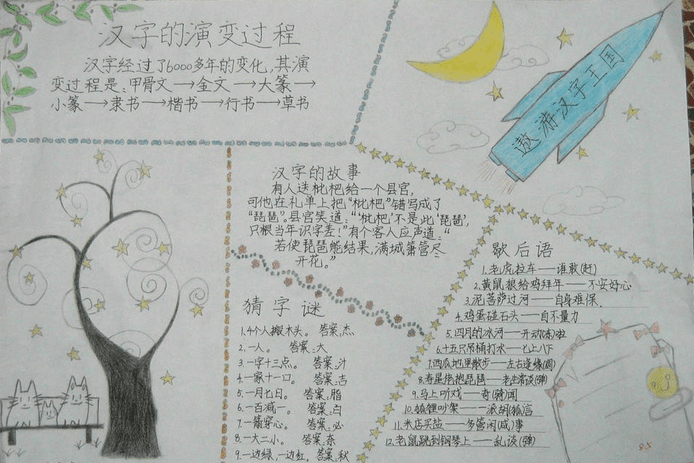 汉字的演变过程
汉字经过了6000多年的变化,其演
变过程是:甲骨文→金文→大篆→
小篆→隶书→楷书→行书→草书
遨游汉字王国
汉字的故事
有人送枇杷给一个县官,
可他在礼单上把"枇杷"错写成了
"琵琶"。县官笑道:"'枇杷'不是此'琵琶',
只恨当年识字差!"有个客人应声道:"
若使琵琶能结果,满城箫管尽
开花。"
猜字谜
1.4个人搬木头。 答案:杰
2.一人。 答案:大
3.一字十三点。 答案:汁
4.一家十一口。 答案:吉
5.一月七日。 答案:脂
6.一百减一。 答案:白
7.一箭穿心。 答案:必
8.一大二小。 答案:奈
9.一边绿,一边红。 答案:秋
歇后语
1.老虎拉车——谁敢(赶)
2.黄鼠狼给鸡拜年——不安好心
3.泥菩萨过河——自身难保
4.鸡蛋碰石头——自不量力
5.四月的冰河——开动(冻)啦
6.十五只吊桶打水——七上八下
7.西瓜地里散步——左右逢缘(圆)
8.寿星弹琵琶——老生常谈(弹)
9.马上听戏——奇(骑)闻
10.狐狸吵架——一派胡言
11.米店卖盐——多管闲(咸)事
12.老鼠跳到钢琴上——乱谈(弹)